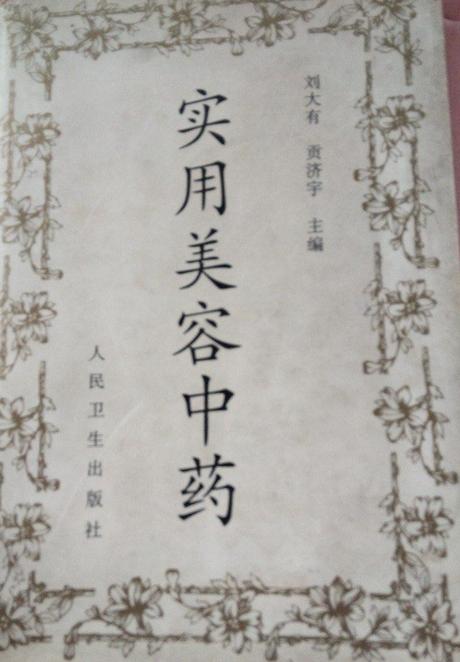 刘大有 贡济宇 主编
实用美容中药
人民卫生出版社